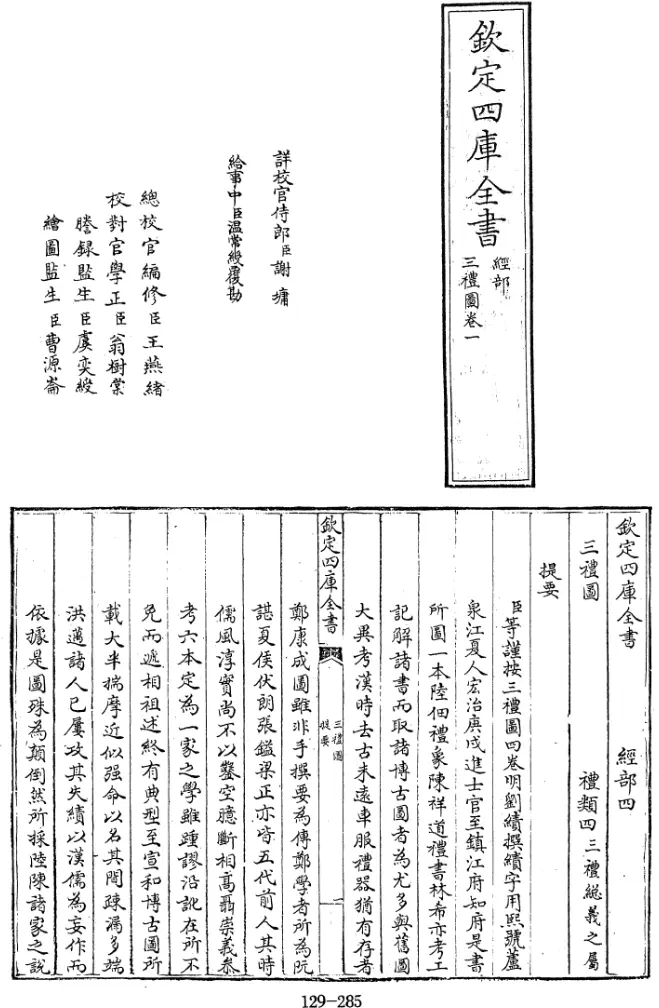 欽定四庫全書
經部
三禮圖卷一
詳校官侍郎臣謝墉
給事中臣温常綬覆勘
總校官編修臣王燕緒
校對官學正臣翁樹棠
謄錄監生臣虞奕綬
繪圖監生臣曹源崙
欽定四庫全書 經部四
三禮圖 禮類四三禮總義之屬
提要
臣等謹按三禮圖四卷明劉績撰績字用熙號蘆
泉江夏人宏治庚戌進士官至鎮江府知府是書
所圖一本陸佃禮象陳祥道禮書林希亦考工
記解諸書而取諸博古圖者為尤多與舊圖
大異考漢時去古未遠車服禮器猶有存者
欽定四庫全書
三禮圖
提要
一
鄭康成圖雖非手撰要為傳鄭學者所為阮
諶夏侯伏朗張鎰梁正亦皆五代前人其時
儒風淳實尚不以鑿空臆斷相高聶崇義叅
考六本定為一家之學雖踵謬沿訛在所不
免而遞相祖述終有典型至宣和博古圖所
載大半揣摩近似强命以名其間疎漏多端
洪邁諸人已屢攻其失績以漢儒為妄作而
依據是圖殊為顛倒然所採陸陳諸家之說
129-285